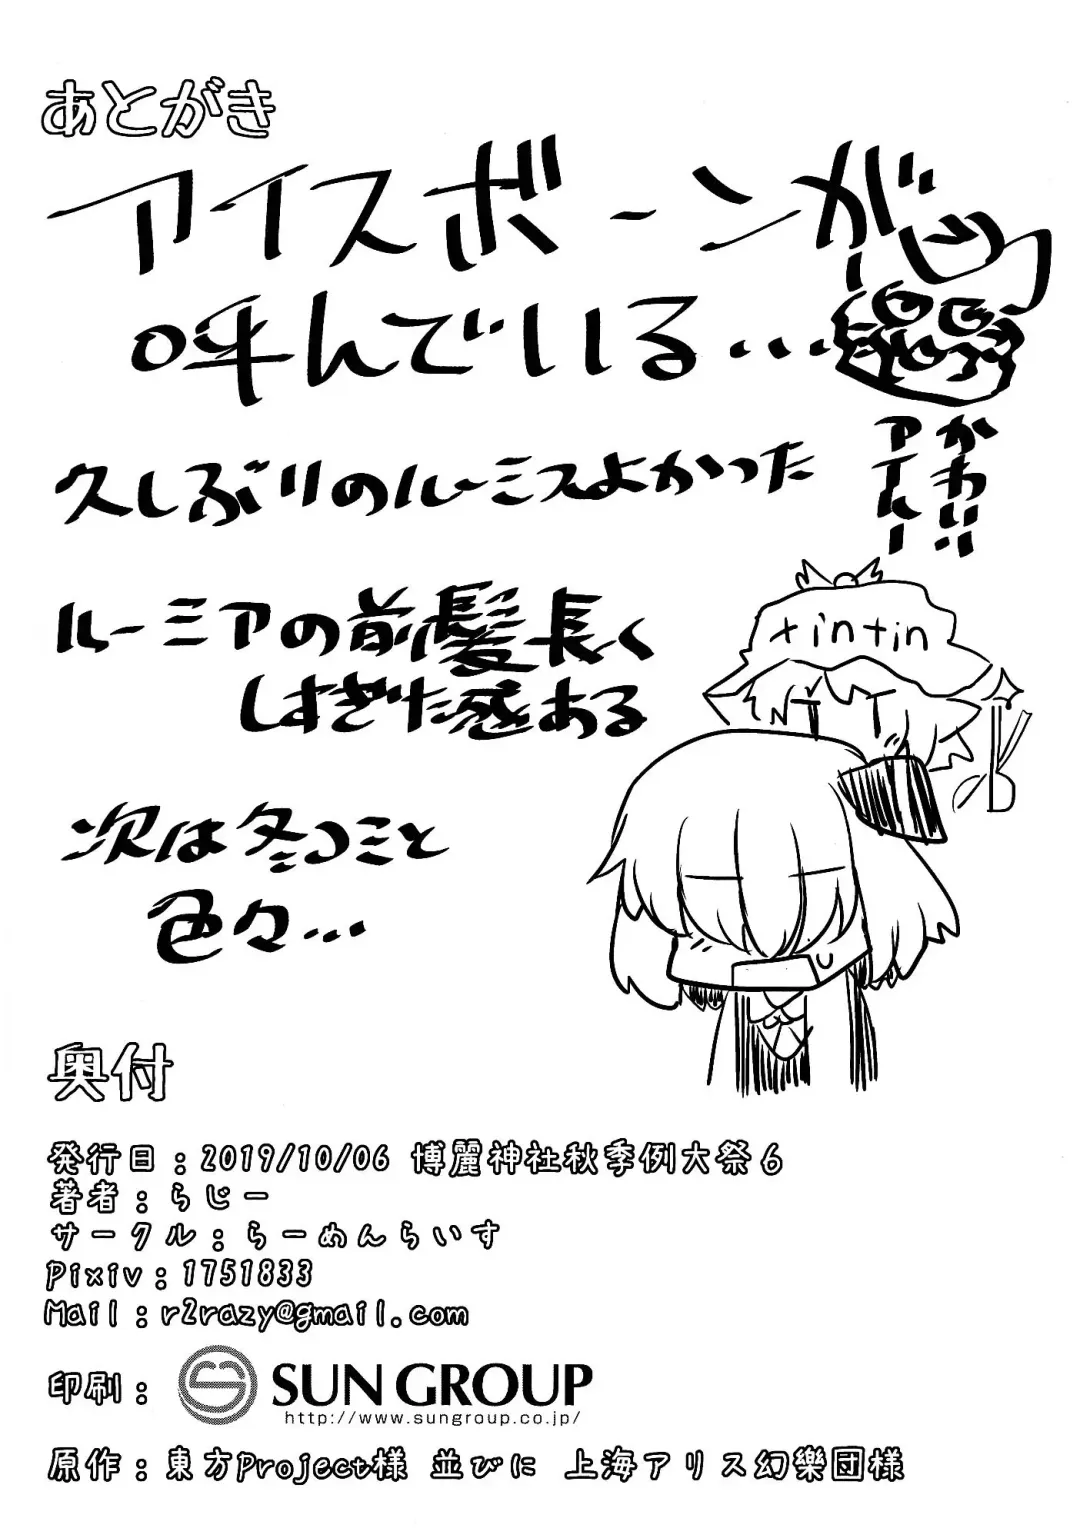 あとがき
アイスボーンが
呼んでいる...
かわいい
アイルー
久しぶりのルーミスよかった
ルーミアの前髪長く
しすぎた感ある
tintin
次は冬コミと
色々...
奥付
発行日:2019/10/06 博麗神社秋季例大祭6
著者:らじー
サークル:らーめんらいす
Pixiv:1751833
Mail:r2razy@gmail.com
印刷:
SUN GROUP
http://www.sungroup.co.jp/
原作:東方Project様 並びに 上海アリス幻樂団様